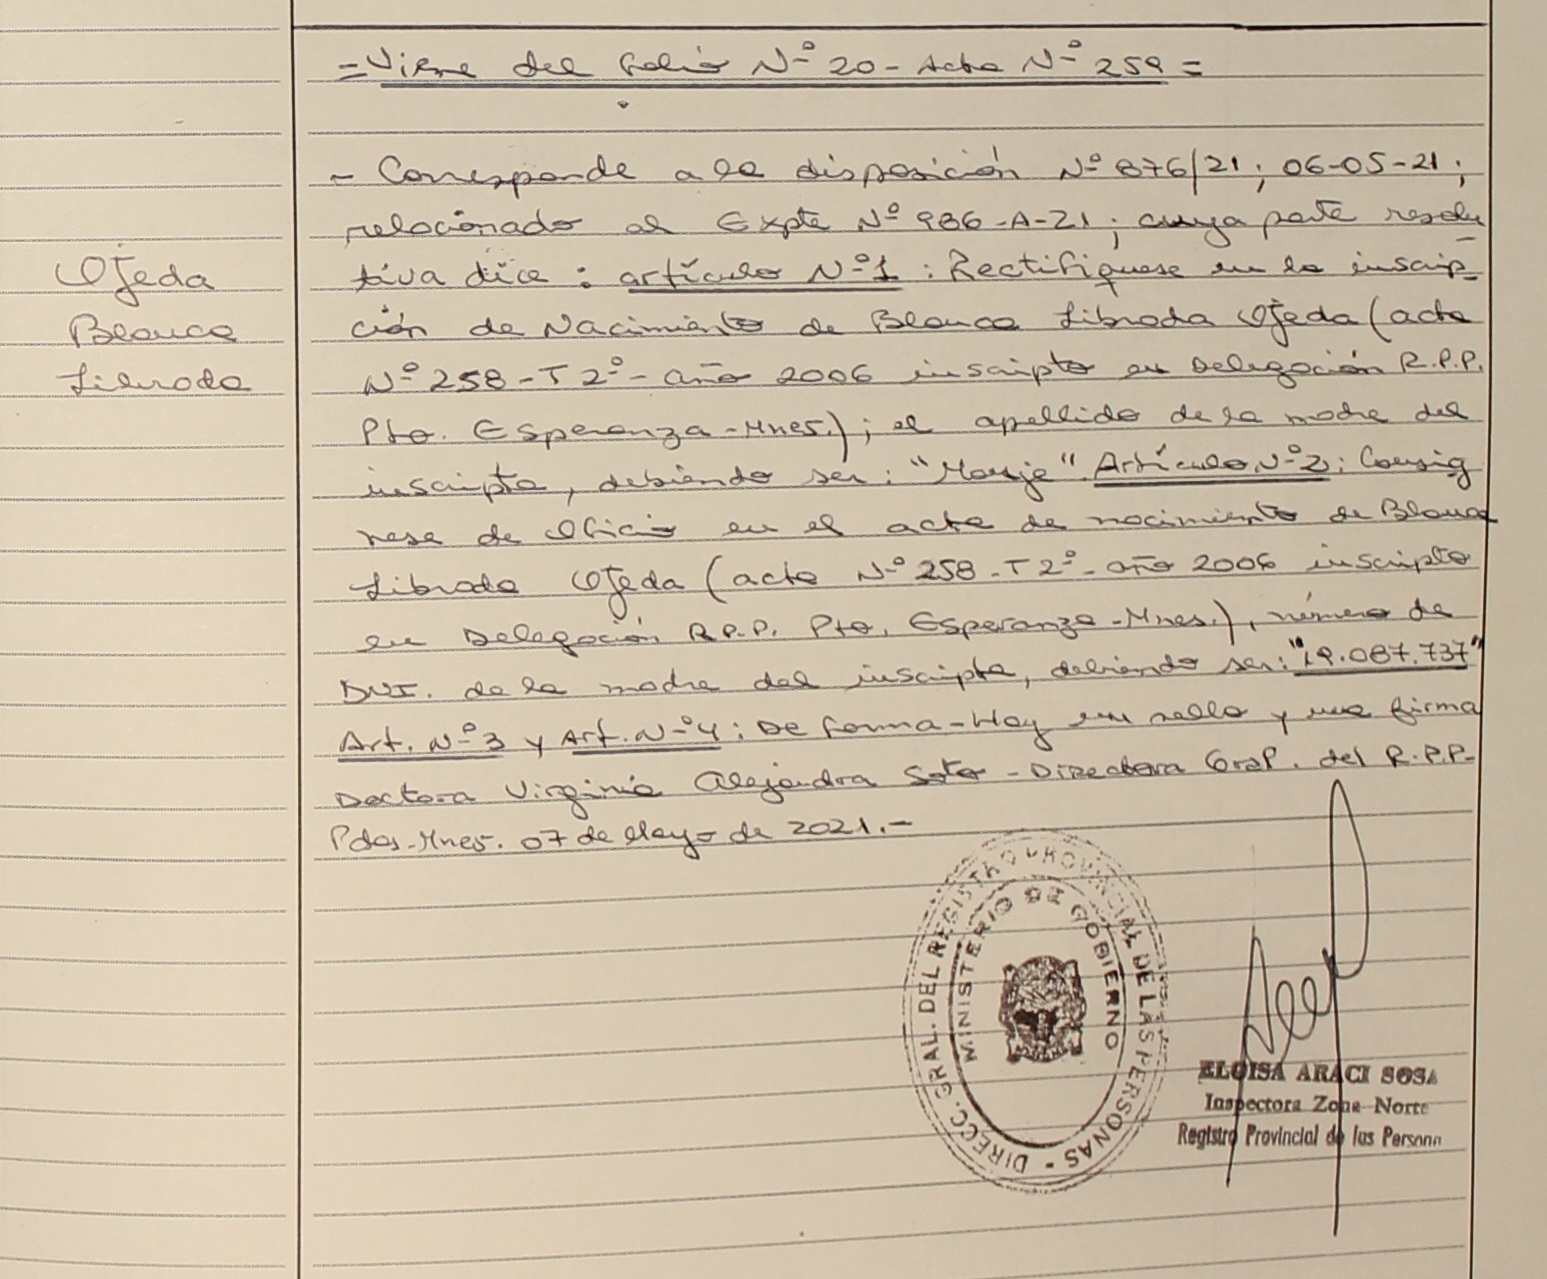 =Viene del folio Nº 20 - Acta Nº 259=
Ojeda
Blanca
Librada
- Corresponde a la disposición Nº 876/21; 06-05-21;
relacionado al Expte Nº 986-A-21; cuya parte resolu
tiva dice: artículo Nº 1: Rectifíquese en la inscrip-
ción de Nacimiento de Blanca Librada Ojeda (acta
Nº 258-T 2º- año 2006 inscripto en Delegación R.P.P.
Pto. Esperanza-Mnes.); el apellido de la madre del
inscripta, debiendo ser: "Monje". Artículo Nº 2: Consig
nese de Oficio en el acta de nacimiento de Blanca
Librada Ojeda (acta Nº 258-T 2º- año 2006 inscripto
en Delegación R.P.P. Pto. Esperanza-Mnes.), número de
DNI. de la madre del inscripta, debiendo ser: "19.087.737"
Art. Nº 3 y Art. Nº 4: De forma-Hay un sello y una firma
Doctora Virginia Alejandra Soto - Directora Gral. del R.P.P-
Pdas-Mnes. 07 de Mayo de 2021.-
DIRECC. GRAL. DEL REGISTRO PROVINCIAL DE LAS PERSONAS -
MINISTERIO DE GOBIERNO
ELOISA ARACI SOSA
Inspectora Zona Norte
Registro Provincial de las Persona